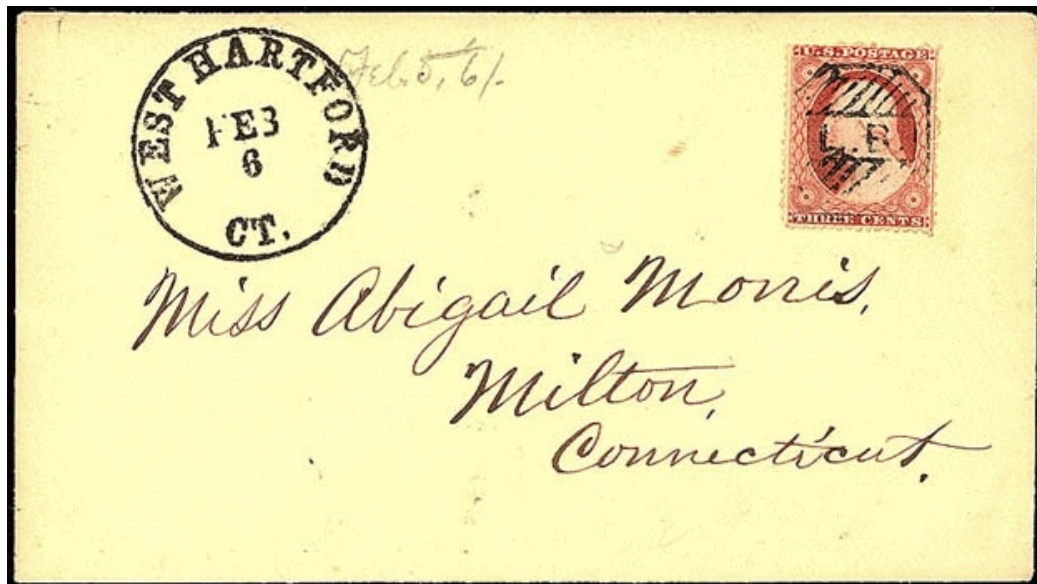 WEST HARTFORD
FEB
6
CT.
Feb. 5, 61.
U.S. POSTAGE
L. B.
THREE CENTS
Miss Abigail Morris,
Milton,
Connecticut.